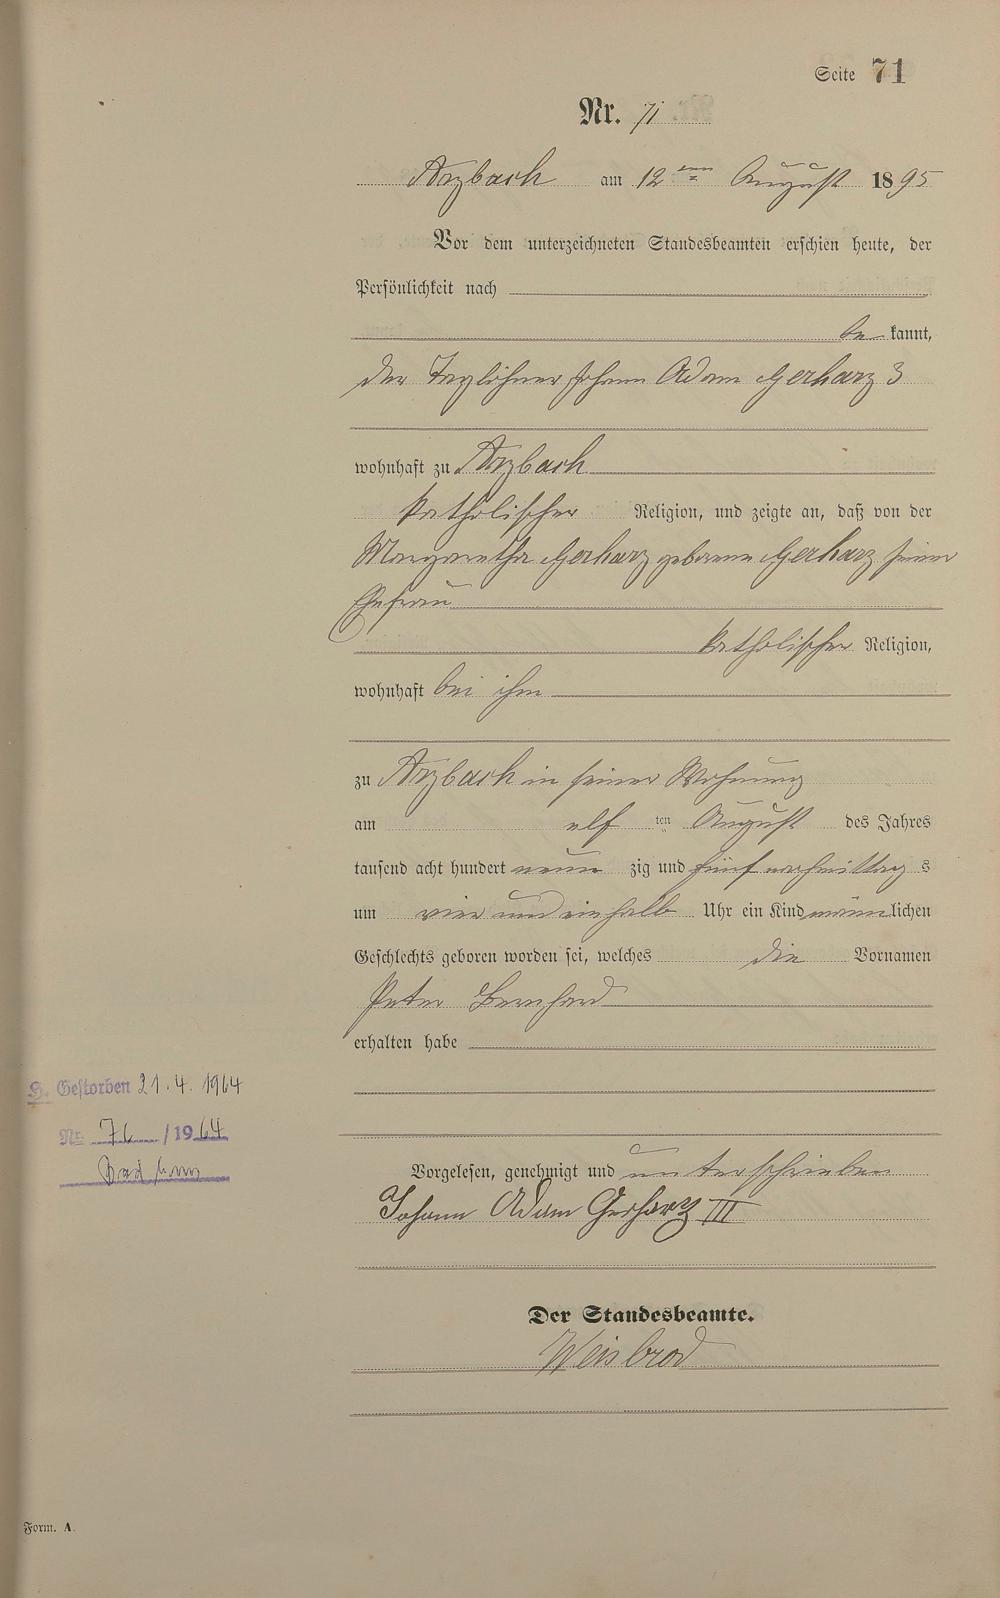 Seite 71
Nr. 71
Arzbach am 12ten August 1895
Vor dem unterzeichneten Standesbeamten erschien heute, der
Persönlichkeit nach
be kannt,
der Taglöhner Johann Adam Gerharz 3
wohnhaft zu Arzbach
katholischer Religion, und zeigte an, daß von der
Margaretha Gerharz geborene Gerharz seiner
Ehefrau
katholischer Religion,
wohnhaft bei ihm
zu Arzbach in seiner Wohnung
am elf ten August des Jahres
tausend acht hundert neun zig und fünf nachmittag s
um vier und einhalb Uhr ein Kind männlichen
Geschlechts geboren worden sei, welches die Vornamen
Peter Bernhard
erhalten habe
H. Gestorben 21.4. 1964
Nr. 76 /1964
Bad Ems
Vorgelesen, genehmigt und unterschrieben
Johann Adam Gerharz III
Der Standesbeamte.
Weisbrod
Form. A.